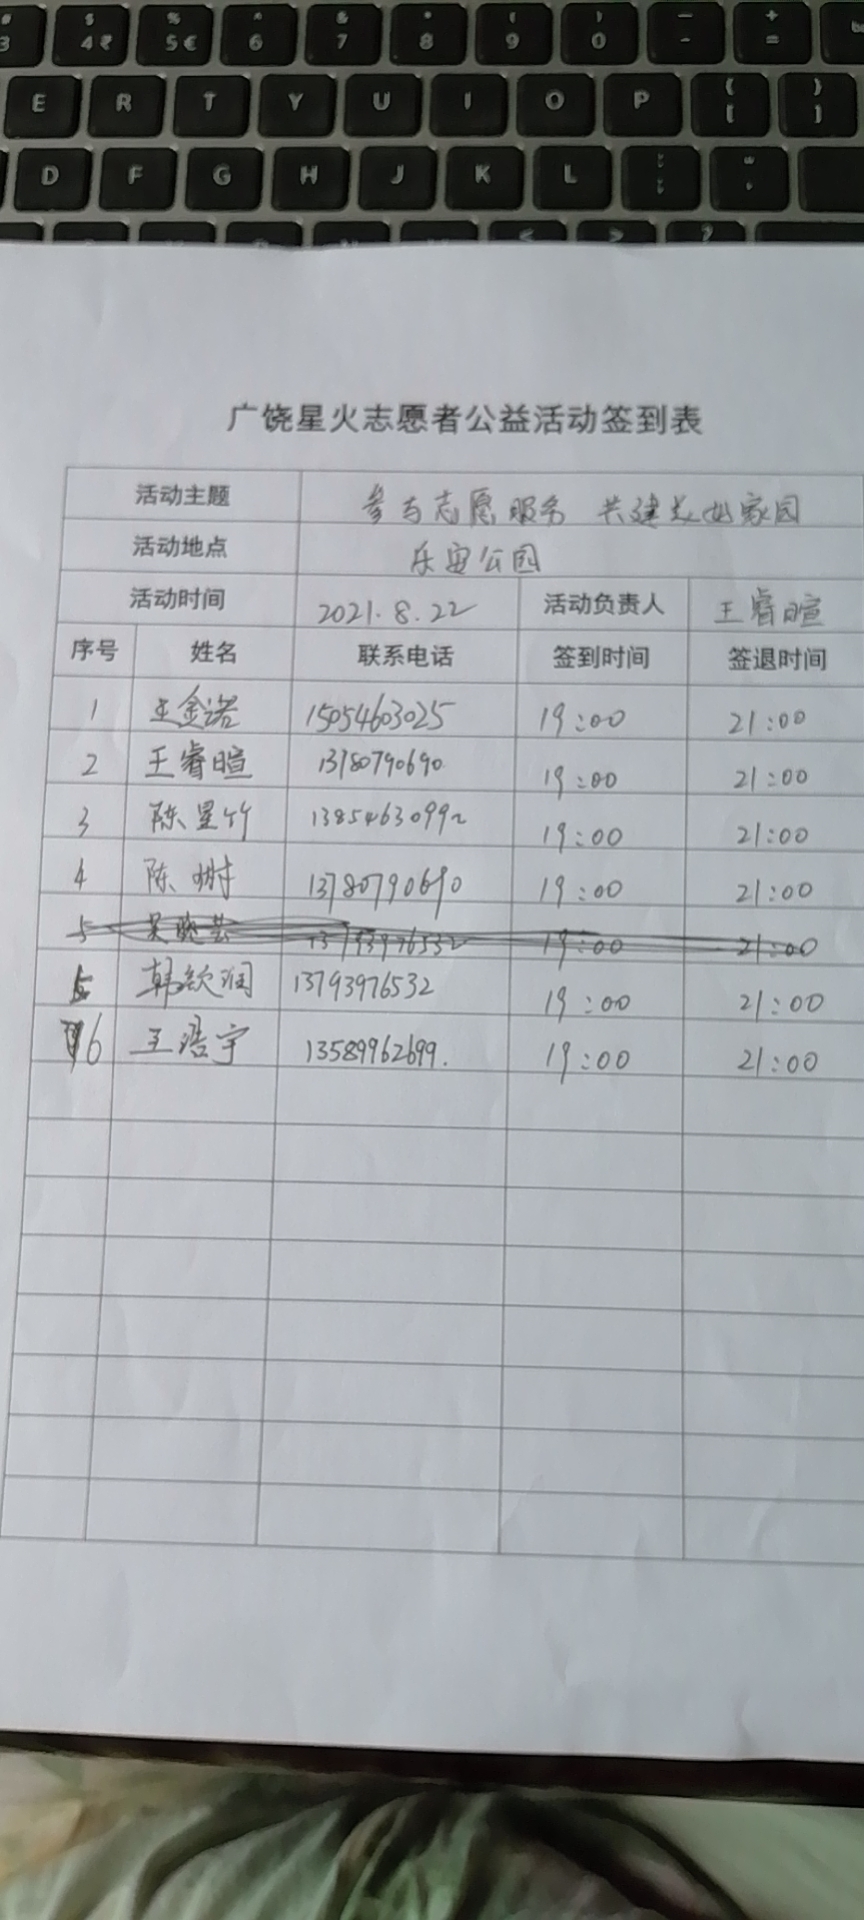 # $ % ^ & * ( ) — +
3 4 ₹ 5 € 6 7 8 9 0 - =
E R T Y U I O P { [ } ]
D F G H J K L
< > ?
广饶星火志愿者公益活动签到表
活动主题 参与志愿服务 共建美好家园
活动地点 乐安公园
活动时间 2021.8.22 活动负责人 王睿暄
序号 姓名 联系电话 签到时间 签退时间
1 王金诺 15054603025 19:00 21:00
2 王睿暄 13780790690 19:00 21:00
3 陈星竹 13854630992 19:00 21:00
4 陈树 13780790690 19:00 21:00
5 吴晓芸 13793976532 19:00 21:00
5 韩钦润 13793976532 19:00 21:00
6 王浩宇 13589962699. 19:00 21:00